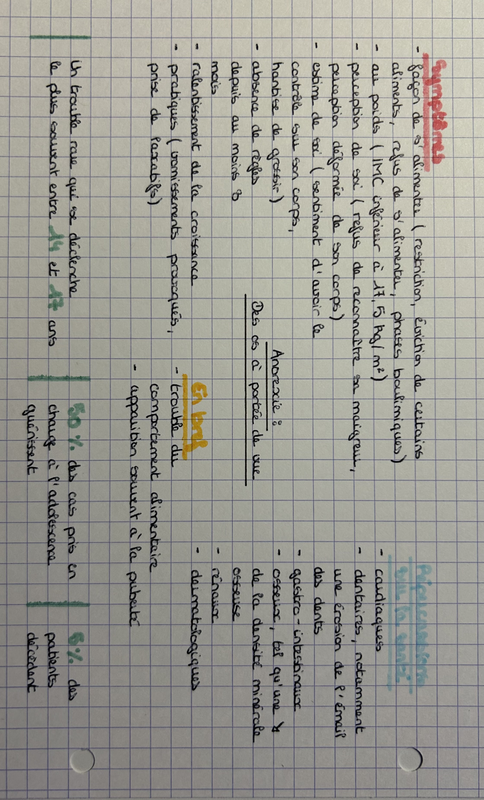 Symptômes
- façon de s'alimenter (restriction, éviction de certains
aliments, refus de s'alimenter, phases boulimiques)
- au poids (IMC inférieur à 17,5 kg/m²)
- perception de soi (refus de reconnaître sa maigreur,
perception déformée de son corps)
- estime de soi (sentiment d'avoir le
contrôle sur son corps,
hantise de grossir)
- absence de règles
depuis au moins 3
mois
- ralentissement de la croissance
- pratiques (vomissements provoqués,
prise de laxatifs)
Anorexie :
Des os à portée de vue
Répercussions
sur la santé
- cardiaques
- dentaires, notamment
une érosion de l'émail
des dents
- gastro-intestinaux
- osseux, tel qu'une ↘
de la densité minérale
osseuse
- rénaux
- dermatologiques
En bref
- trouble du
comportement alimentaire
- apparition souvent à la puberté
Un trouble rare qui se déclenche
le plus souvent entre 14 et 17 ans
50% des cas pris en
charge à l'adolescence
guérissent
5% des
patients
décèdent